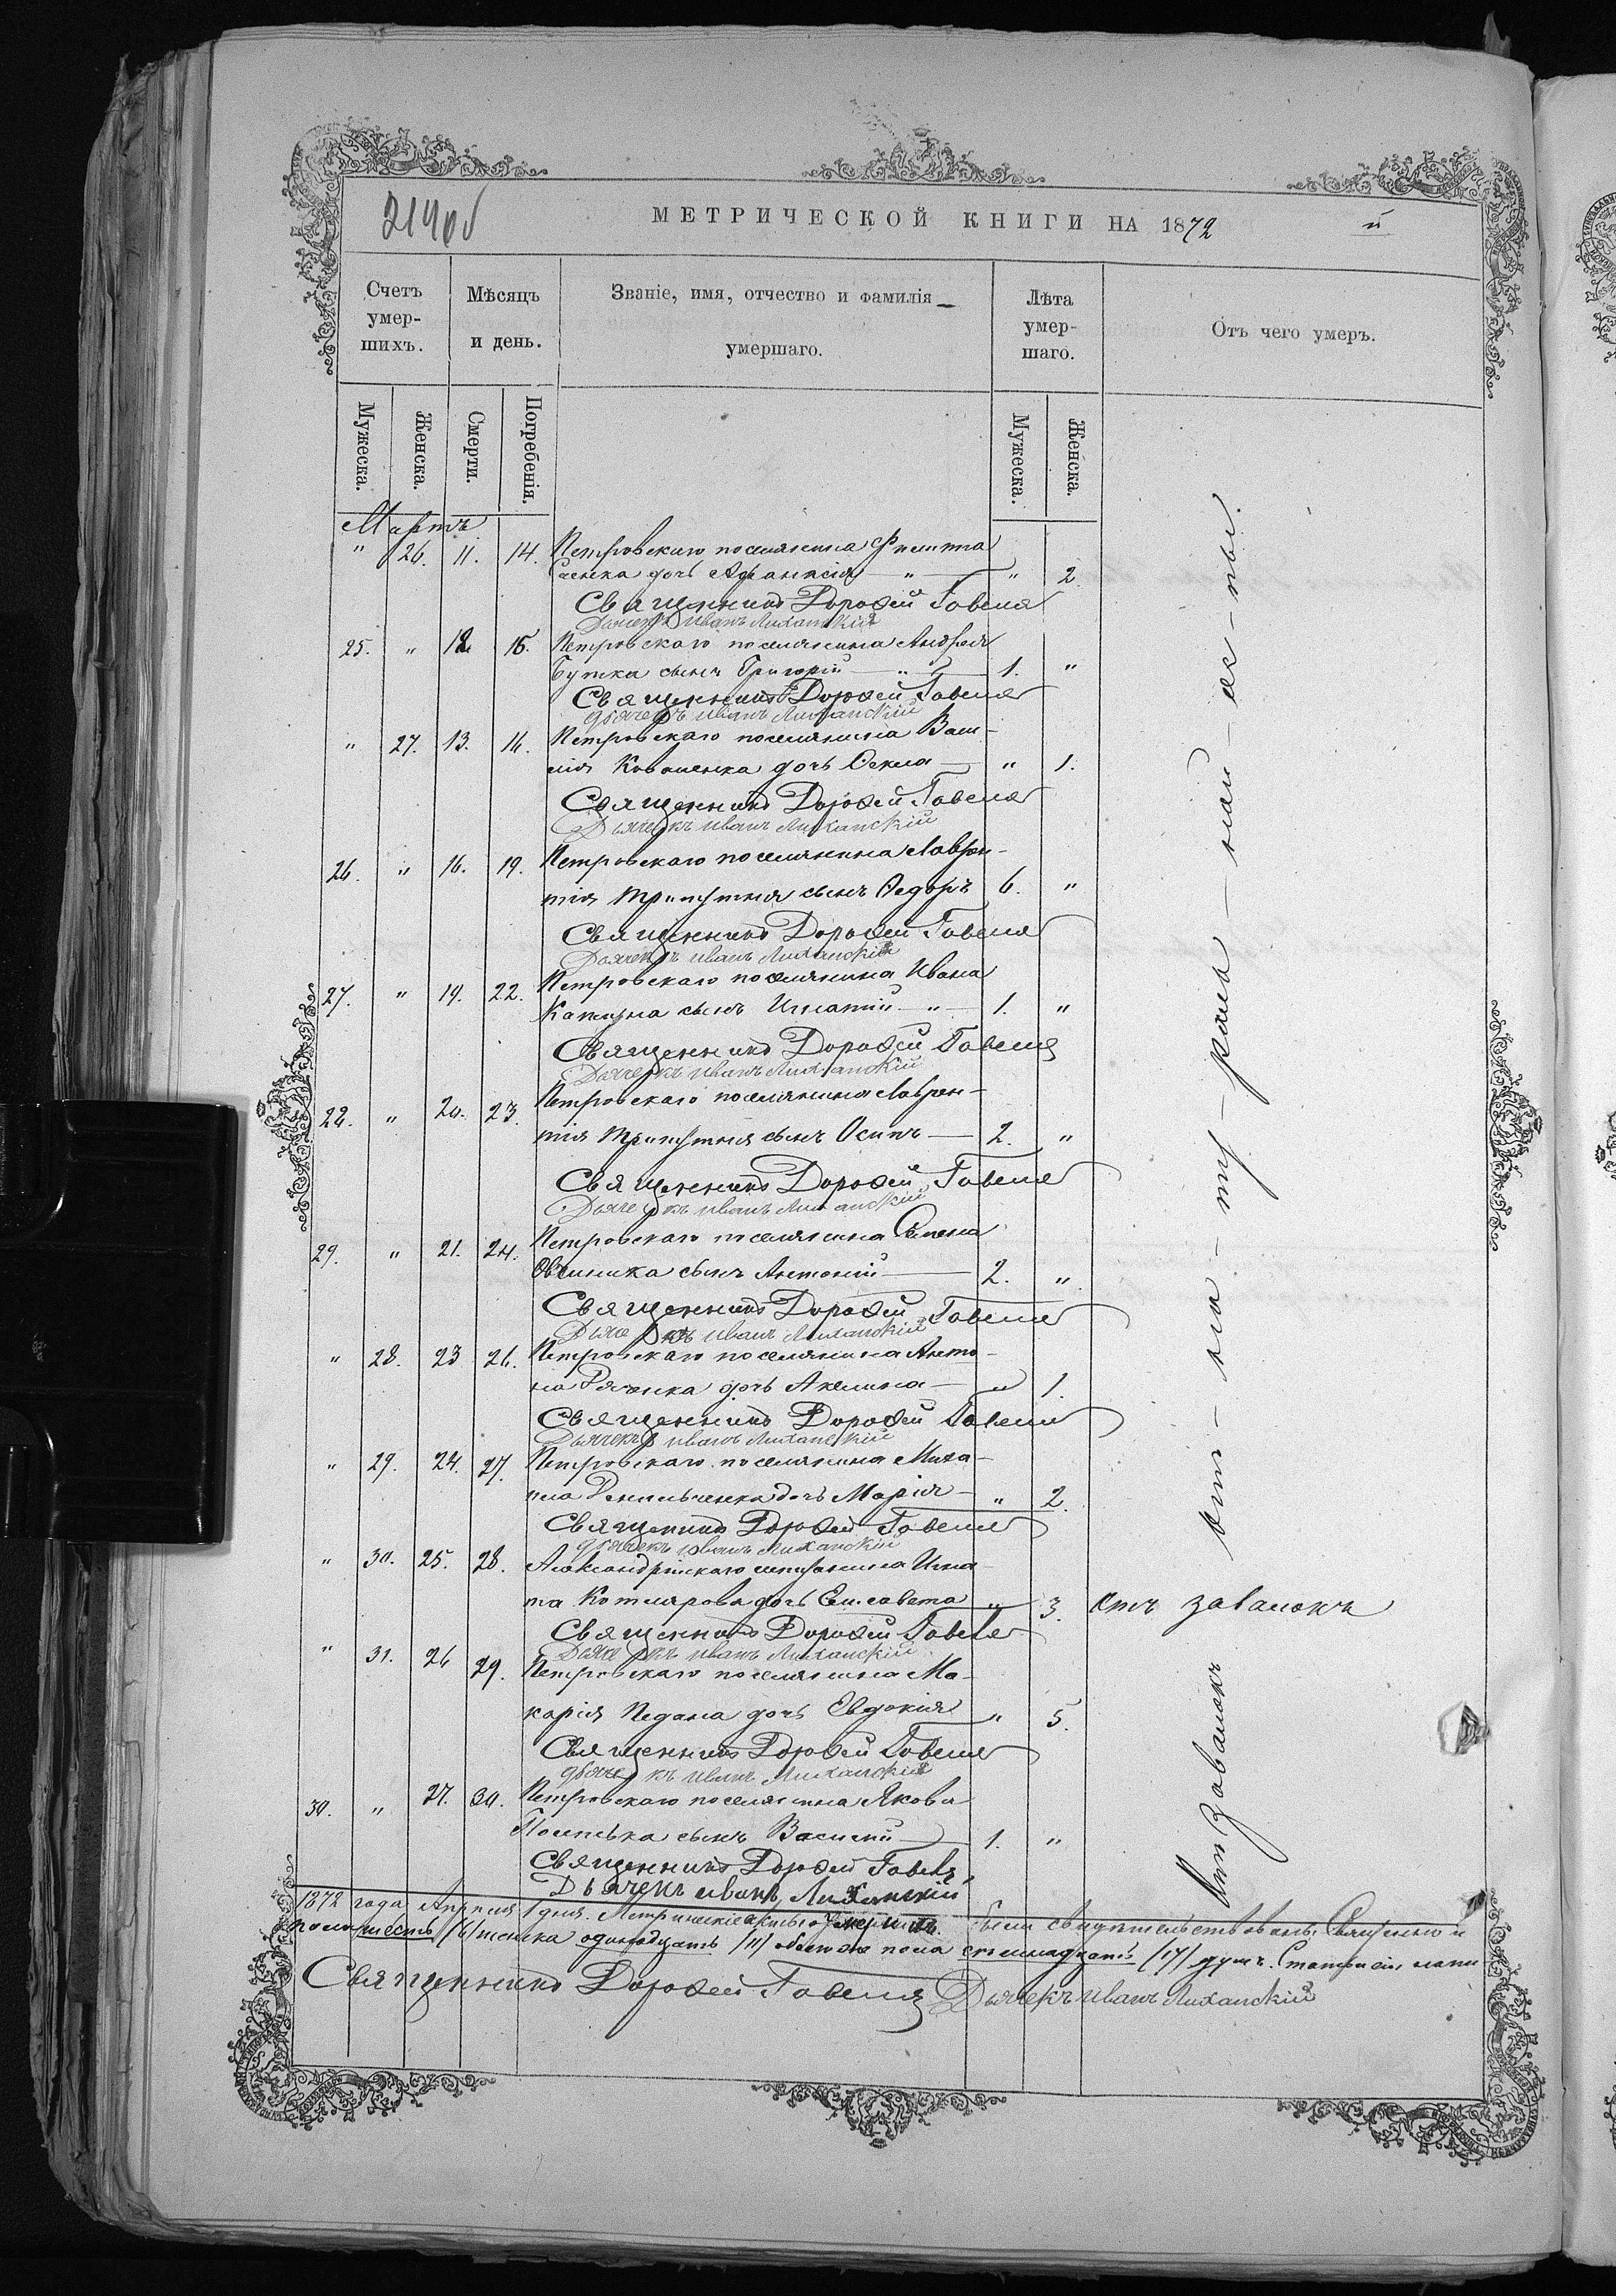 219об
МЕТРИЧЕСКОЙ КНИГИ НА 1872 й
Счетъ умер-шихъ.
Мѣсяцъ и день.
Званіе, имя, отчество и фамилія умершаго.
Лѣта умер-шаго.
Отъ чего умеръ.
Мужеска.
Женска.
Смерти.
Погребенія.
Мужеска.
Женска.
Мартъ
" 26. 11. 14. Петровскаго поселянина Филиппа
дочь Афанасія " " 2.
Священникъ Дорофей Говеля
Дьячекъ Иванъ Лиханскій
25. " 12. 15. Петровскаго поселянина Андрея
Бутка сынъ Григорій " 1. "
Священникъ Дорофей Говеля
Дьячекъ Иванъ Лиханскій
" 27. 13. 16. Петровскаго поселянина Васи-
лія Коваленка дочь Фекла " 1.
Священникъ Дорофей Говеля
Дьячекъ Иванъ Лиханскій
26. " 16. 19. Петровскаго поселянина Лаврен-
тія Трипутня сынъ Федоръ 6. "
Священникъ Дорофей Говеля
Дьячекъ Иванъ Лиханскій
27. " 19. 22. Петровскаго поселянина Ивана
сынъ Игнатій " 1. "
Священникъ Дорофей Говеля
Дьячекъ Иванъ Лиханскій
28. " 20. 23. Петровскаго поселянина Лаврен-
тія Трипутня сынъ Осипъ 2. "
Священникъ Дорофей Говеля
Дьячекъ Иванъ Лиханскій
29. " 21. 24. Петровскаго поселянина Семена
сынъ Антоній 2. "
Священникъ Дорофей Говеля
Дьячекъ Иванъ Лиханскій
" 28. 23 26. Петровскаго поселянина Анто-
на дочь Акелина " 1.
Священникъ Дорофей Говеля
Дьячекъ Иванъ Лиханскій
" 29. 24. 27. Петровскаго поселянина Миха-
ила дочь Марія " 2.
Священникъ Дорофей Говеля
Дьячекъ Иванъ Лиханскій
" 30. 25. 28. Александрійскаго мещанина Игна-
та Котлярова дочь Елисавета " 3. Отъ завалокъ
Священникъ Дорофей Говеля
Дьячекъ Иванъ Лиханскій
" 31. 26 29. Петровскаго поселянина Ма-
карія Педана дочь Евдокія " 5.
Священникъ Дорофей Говеля
Дьячекъ Иванъ Лиханскій
30. " 27. 30. Петровскаго поселянина Якова
сынъ Василій 1. "
Священникъ Дорофей Говеля
Дьячекъ Иванъ Лиханскій
От-на-ту-рал-
Отъ завалокъ
1872 года Апреля 1 дня. Метрическіе акты о умершихъ были свидетельствованы.
пола шесть /6/ женска одинадцать /11/ обоего пола семнадцать /17/ душъ.
Священникъ Дорофей Говеля Дьячекъ Иванъ Лиханскій